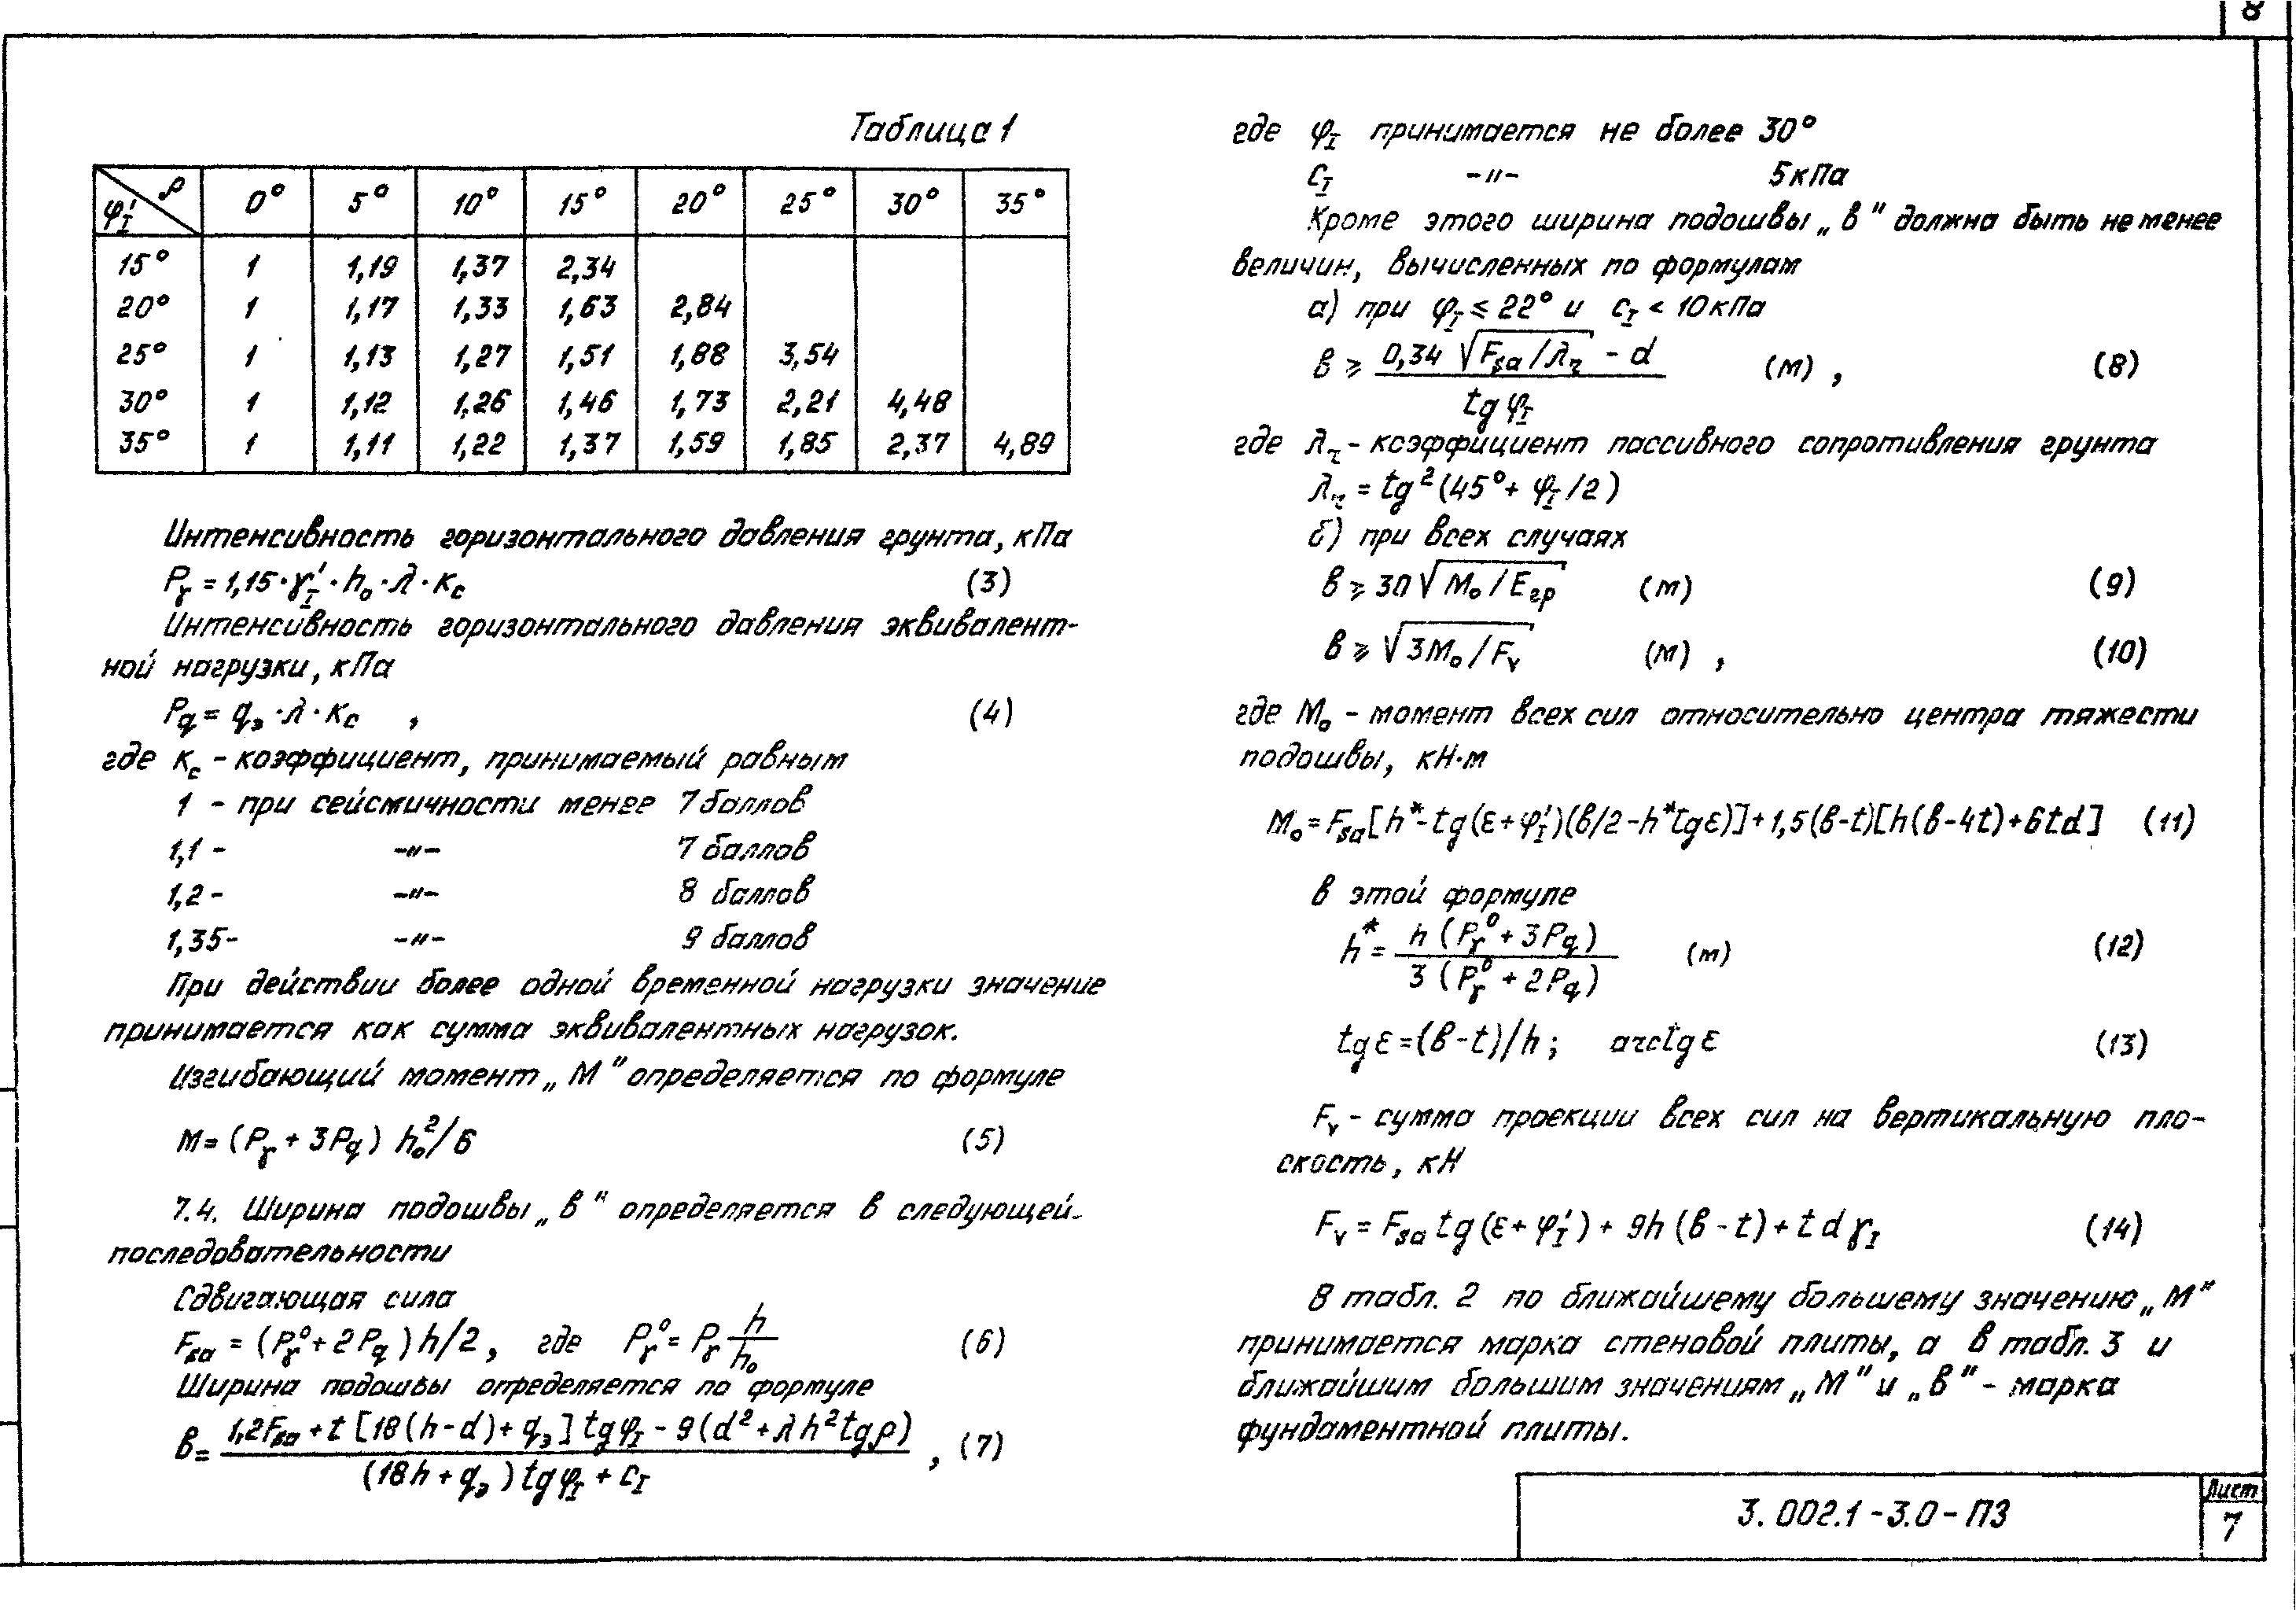 8
Таблица 1
φ'I \ ρ 0° 5° 10° 15° 20° 25° 30° 35°
15° 1 1,19 1,37 2,34
20° 1 1,17 1,33 1,63 2,84
25° 1 1,13 1,27 1,51 1,88 3,54
30° 1 1,12 1,26 1,46 1,73 2,21 4,48
35° 1 1,11 1,22 1,37 1,59 1,85 2,37 4,89
Интенсивность горизонтального давления грунта, кПа
Pγ = 1,15·γ'I·h₀·λ·Kc (3)
Интенсивность горизонтального давления эквивалент-
ной нагрузки, кПа
Pq = qэ·λ·Kc , (4)
где Kc - коэффициент, принимаемый равным
1 - при сейсмичности менее 7 баллов
1,1 - -"- 7 баллов
1,2 - -"- 8 баллов
1,35- -"- 9 баллов
При действии более одной временной нагрузки значение
принимается как сумма эквивалентных нагрузок.
Изгибающий момент „М" определяется по формуле
M = (Pγ + 3Pq) h₀²/6 (5)
7.4. Ширина подошвы „в" определяется в следующей
последовательности
Сдвигающая сила
Fsa = (Pγ⁰ + 2Pq) h/2 , где Pγ⁰ = Pγ h/h₀ (6)
Ширина подошвы определяется по формуле
в = (1,2Fsa + t [18(h-d) + qэ] tgφI - 9(d² + λh²tgρ)) / ((18h + qэ) tgφI + cI) , (7)
где φI принимается не более 30°
cI -"- 5кПа
Кроме этого ширина подошвы „в" должна быть не менее
величин, вычисленных по формулам
а) при φI ≤ 22° и cI < 10кПа
в ≥ (0,34 √(Fsa/λr) - d) / tgφI (м) , (8)
где λr - коэффициент пассивного сопротивления грунта
λr = tg²(45° + φI/2)
б) при всех случаях
в ≥ 30 √(M₀/Eгр) (м) (9)
в ≥ √(3M₀/Fv) (м) , (10)
где M₀ - момент всех сил относительно центра тяжести
подошвы, кН·м
M₀ = Fsa[h*-tg(ε+φ'I)(в/2-h*tgε)]+1,5(в-t)[h(в-4t)+6td] (11)
в этой формуле
h* = h(Pγ⁰ + 3Pq) / 3(Pγ⁰ + 2Pq) (м) (12)
tgε = (в-t)/h ; arctgε (13)
Fv - сумма проекции всех сил на вертикальную пло-
скость, кН
Fv = Fsa tg(ε+φ'I) + 9h(в-t) + tdγI (14)
В табл. 2 по ближайшему большему значению „М"
принимается марка стеновой плиты, а в табл. 3 и
ближайшим большим значениям „М" и „в" - марка
фундаментной плиты.
3.002.1-3.0-ПЗ
Лист
7